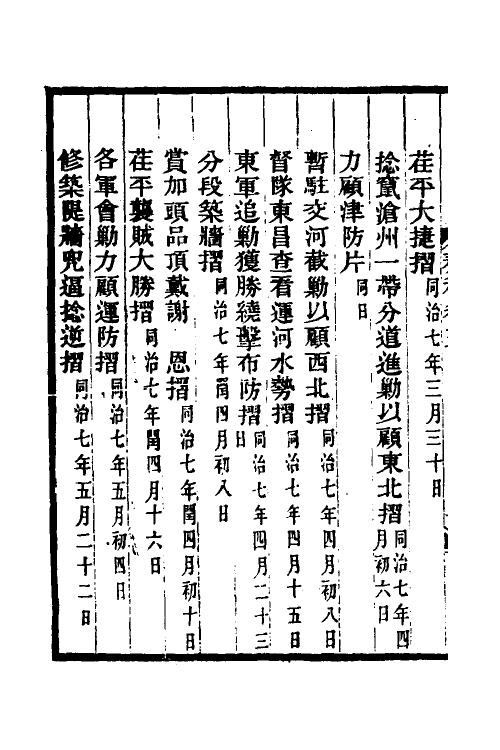 茌平大捷摺同治七年三月三十日
捻竄滄州一帶分道進勦以顧東北摺同治七年四月初六日
力顧津防片同日
暫駐交河截勦以顧西北摺同治七年四月初八日
督隊東昌查看運河水勢摺同治七年四月十五日
東軍追勦獲勝繞擊布防摺同治七年四月二十三日
分段築牆摺同治七年閏四月初八日
賞加頭品頂戴謝 恩摺同治七年閏四月初十日
茌平襲賊大勝摺同治七年閏四月十六日
各軍會勦力顧運防摺同治七年五月初四日
修築隄牆兜逼捻逆摺同治七年五月二十二日